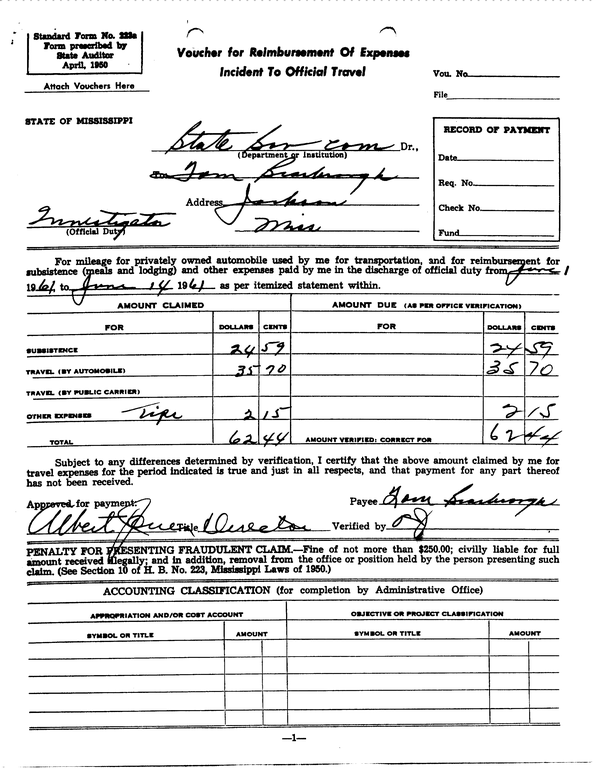 Standard Form No. 223a
Form prescribed by
State Auditor
April, 1950
Attach Vouchers Here
Voucher for Reimbursement Of Expenses
Incident To Official Travel
Vou. No.
File
STATE OF MISSISSIPPI
State Sov com Dr.,
(Department or Institution)
To Tom Scarbrough
Address Jackson
Miss
Investigator
(Official Duty)
RECORD OF PAYMENT
Date
Req. No.
Check No.
Fund
For mileage for privately owned automobile used by me for transportation, and for reimbursement for
subsistence (meals and lodging) and other expenses paid by me in the discharge of official duty from June 1
1961, to June 14 1961 as per itemized statement within.
AMOUNT CLAIMED AMOUNT DUE (AS PER OFFICE VERIFICATION)
FOR DOLLARS CENTS FOR DOLLARS CENTS
SUBSISTENCE 24 59 24 59
TRAVEL (BY AUTOMOBILE) 35 70 35 70
TRAVEL (BY PUBLIC CARRIER)
OTHER EXPENSES Tips 2 15 2 15
TOTAL 62 44 AMOUNT VERIFIED: CORRECT FOR 62 44
Subject to any differences determined by verification, I certify that the above amount claimed by me for
travel expenses for the period indicated is true and just in all respects, and that payment for any part thereof
has not been received.
Approved for payment: Payee Tom Scarbrough
Albert Jones Title Director Verified by
PENALTY FOR PRESENTING FRAUDULENT CLAIM.—Fine of not more than $250.00; civilly liable for full
amount received illegally; and in addition, removal from the office or position held by the person presenting such
claim. (See Section 10 of H. B. No. 223, Mississippi Laws of 1950.)
ACCOUNTING CLASSIFICATION (for completion by Administrative Office)
APPROPRIATION AND/OR COST ACCOUNT OBJECTIVE OR PROJECT CLASSIFICATION
SYMBOL OR TITLE AMOUNT SYMBOL OR TITLE AMOUNT
—1—